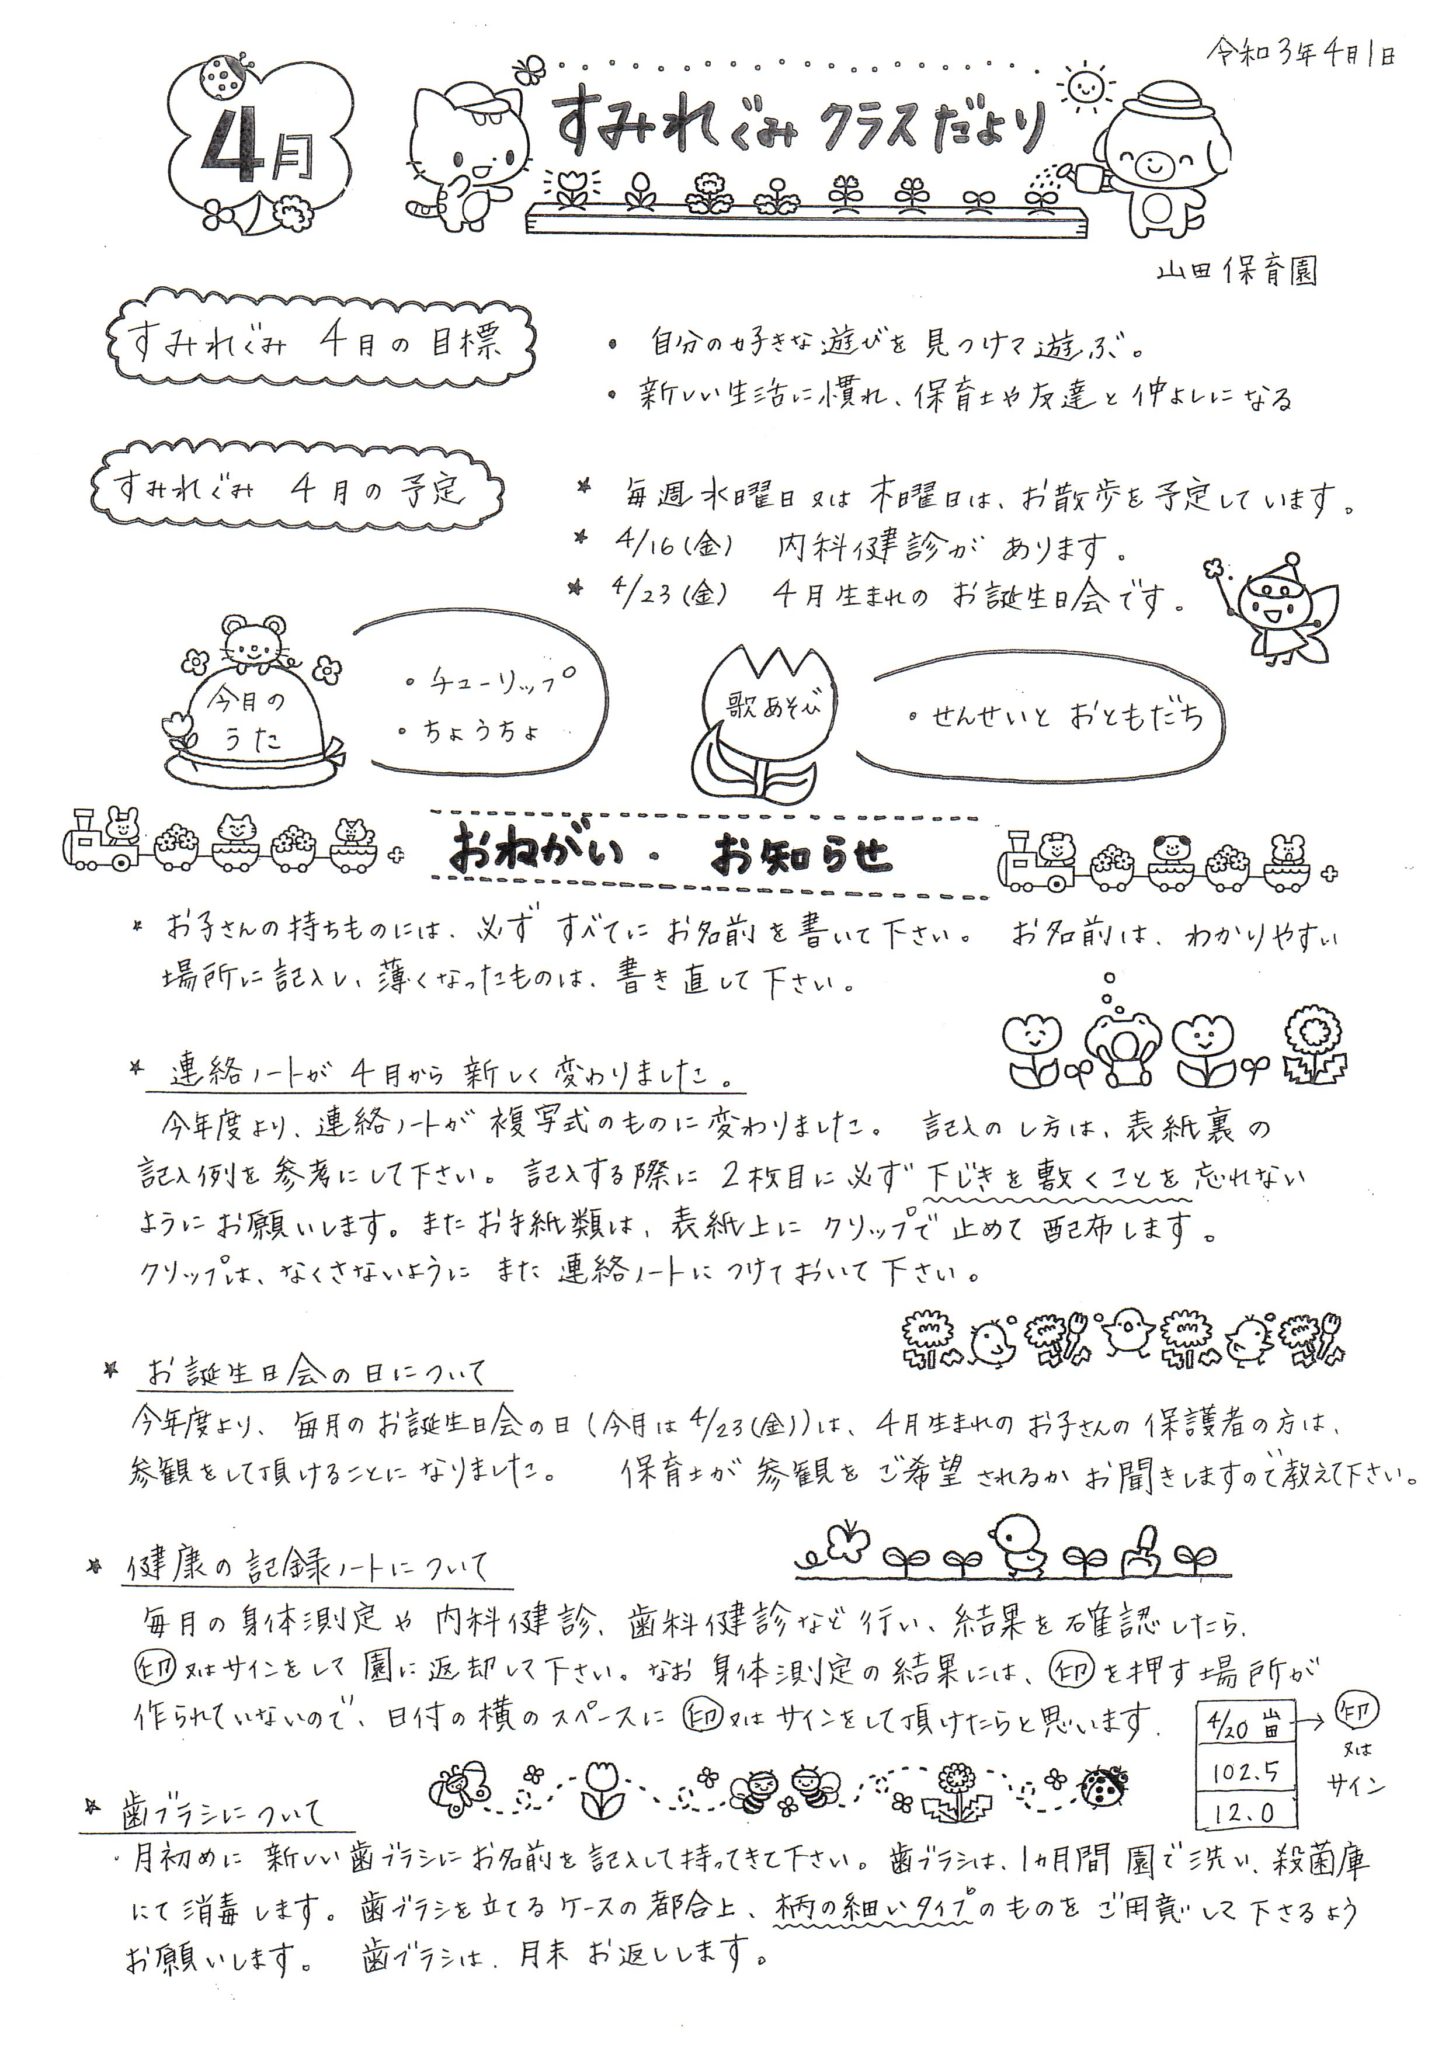 令和3年4月1日
4月
すみれぐみ クラスだより
山田保育園
すみれぐみ 4月の目標
・ 自分の好きな遊びを見つけて遊ぶ。
・ 新しい生活に慣れ、保育士や友達と仲よしになる
すみれぐみ 4月の予定
★ 毎週水曜日又は木曜日は、お散歩を予定しています。
★ 4/16(金) 内科健診があります。
★ 4/23(金) 4月生まれのお誕生日会です。
今月の
うた
・チューリップ
・ちょうちょ
歌あそび
・せんせいとおともだち
おねがい・お知らせ
★ お子さんの持ちものには、必ずすべてにお名前を書いて下さい。 お名前は、わかりやすい
場所に記入し、薄くなったものは、書き直して下さい。
★ 連絡ノートが4月から新しく変わりました。
今年度より、連絡ノートが複写式のものに変わりました。 記入のし方は、表紙裏の
記入例を参考にして下さい。記入する際に2枚目に必ず下じきを敷くことを忘れない
ようにお願いします。またお手紙類は、表紙上にクリップで止めて配布します。
クリップは、なくさないようにまた連絡ノートにつけておいて下さい。
★ お誕生日会の日について
今年度より、毎月のお誕生日会の日(今月は4/23(金))は、4月生まれのお子さんの保護者の方は、
参観をして頂けることになりました。 保育士が参観をご希望されるかお聞きしますので教えて下さい。
★ 健康の記録ノートについて
毎月の身体測定や内科健診、歯科健診など行い、結果を確認したら、
印又はサインをして園に返却して下さい。なお身体測定の結果には、印を押す場所が
作られていないので、日付の横のスペースに印又はサインをして頂けたらと思います.
4/20 山田 → 印
又は
サイン
102.5
12.0
★ 歯ブラシについて
・月初めに新しい歯ブラシにお名前を記入して持ってきて下さい。歯ブラシは、1ヵ月間園で洗い、殺菌庫
にて消毒します。歯ブラシを立てるケースの都合上、柄の細いタイプのものをご用意して下さるよう
お願いします。 歯ブラシは、月末お返しします。